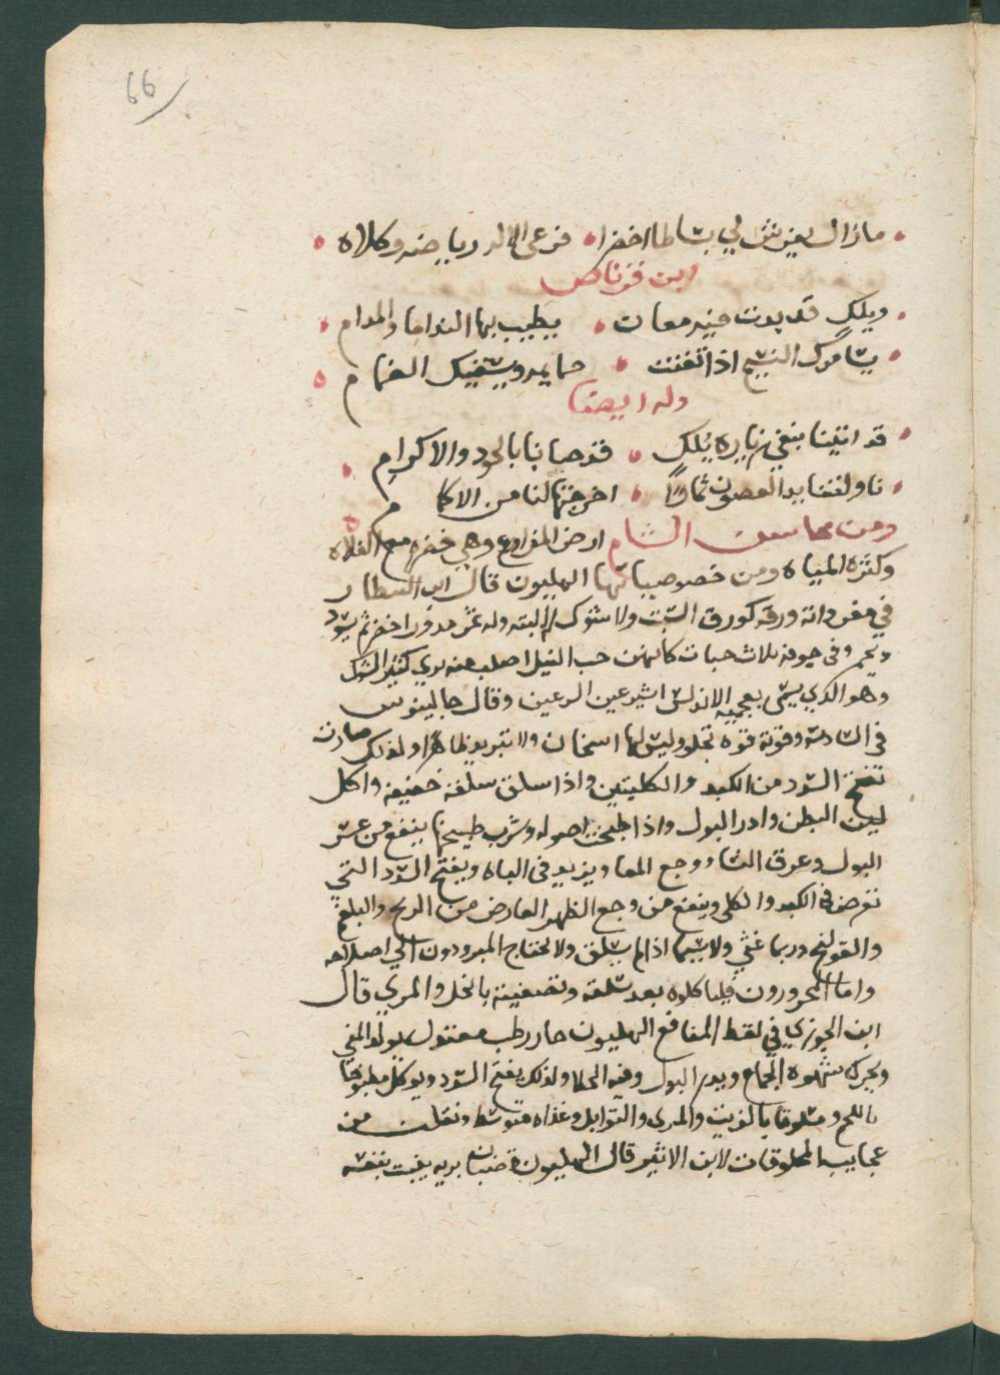 66
مازال يفرش لي بساطا اخضرا فرعى الاله رياضه وكلاه
ابن قرناص
ويلك قد بدت فيه معان يطيب بها الندامى والمدام
يسامرك النسيم اذا تغنت حمايمه ويسقيك الغمام
وله ايضا
قد اتينا نبغي زيارة يلك فتوصانا بالجود والاكرام
ناولتنا يد الغصون ثمارا اخرجتها لنا من الاكمام
ومن محاسن الشام ارض المزارع وهي خضره مع الفلاه
وكثرة المياه ومن خصوصياتها الهليون قال ابن البيطار
في مفرداته ورقه كورق الشبت ولا شوك له البته وله ثمر مدور اخضر ثم يسود
ويحمر وفى جوفه ثلاث حبات كانهن حب النيل اصلب منه بري كثير الشوك
وهو الذي يسمى بعجمية الاندلس اشبرعين الرعين وقال جالينوس
في السادسة وقوته قوة تجلو وليس لها اسخان ولا تبريد ظاهر ولذلك صارت
تفتح السدد من الكبد والكليتين واذا سلق سلقة خفيفه واكل
لين البطن وادر البول واذا طبخت اصوله وشرب طبيخها ينفع من عسر
البول وعرق النسا ووجع المعا ويزيد فى الباه ويفتح السدد التي
تعرض فى الكبد والكلى وينفع من وجع الظهر العارض من الريح والبلغم
والقولنج وربما غثي ولا سيما اذا لم يسلق ولا يحتاج المبرودون الى اصلاحه
واما المحرورون فلياكلوه بعد سلقه وتصفيته بالخل والمري قال
ابن الجوزي في لقط المنافع الهليون حار رطب معتدل يولد المني
ويحرك شهوة الجماع ويدر البول وفيه الجلا ولذلك يفتح السدد ويوكل مطبوخا
باللحم ومسلوقا بالزيت والمري والتوابل وغذاه متوسط ونقلت من
عجايب المخلوقات لابن الاثير قال الهليون قضبان بريه ينبت بنفسه